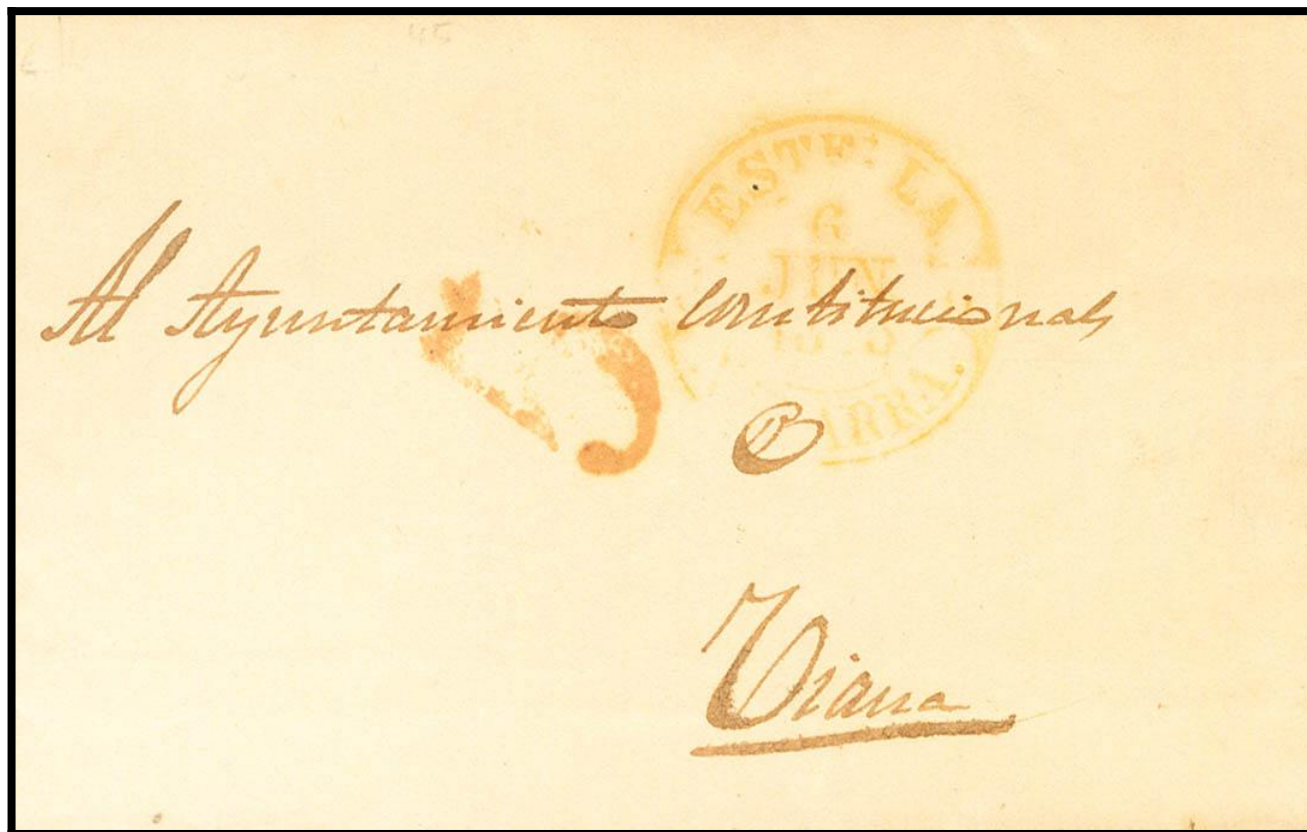 ESTELLA
6
JUN
Al Ayuntamiento constitucional
Viana